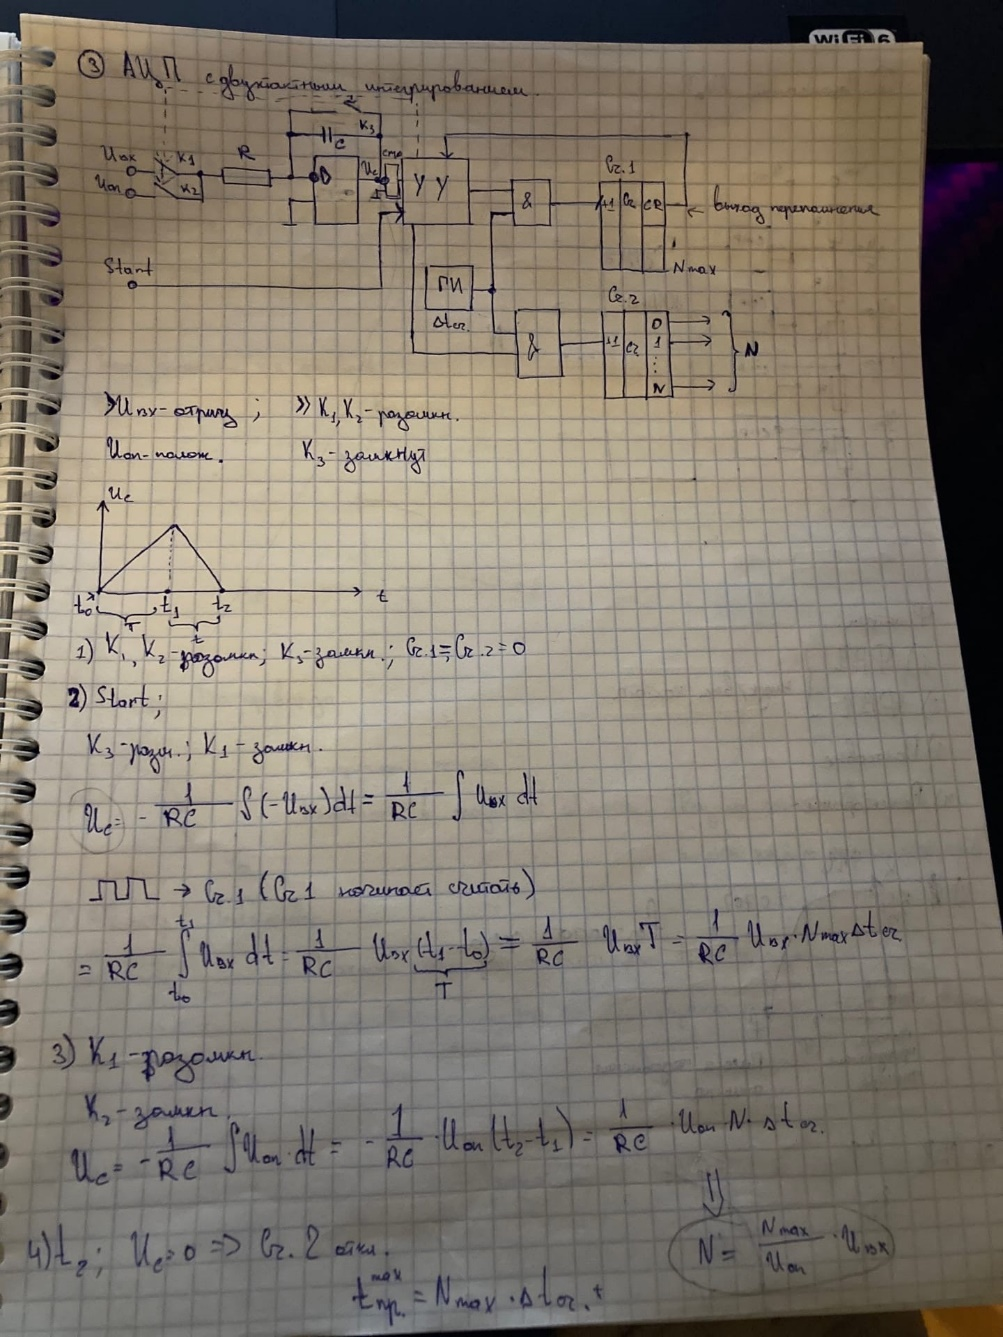 WiFi 6
③ АЦП с двухтактным интегрированием.
Uвх K1 R C K3 Uc Стр УУ & Сг.1 +1 Сг CR ← выход переполнения
Uоп K2
Start ГИ Nmax
Δtсг. Сг.2
& +1 Сг 0 1 ⋮ N } N
Uвх-отриц ; » K1, K2-разомкн.
Uоп-полож. K3-замкнут
Uc
t0 t1 t2 t
T t
1) K1, K2-разомкн; K3-замкн.; Сг.1=Сг.2=0
2) Start;
K3-разм.; K1-замкн.
Uc = - 1/RC ∫(-Uвх)dt = 1/RC ∫ Uвх dt
→ Сг.1 (Сг1 начинает считать)
= 1/RC ∫t0t1 Uвх dt = 1/RC Uвх (t1-t0) = 1/RC UвхT = 1/RC Uвх·NmaxΔtсг
T
3) K1-разомкн.
K2-замкн.
Uc = - 1/RC ∫Uоп·dt = - 1/RC ·Uоп(t2-t1) = 1/RC ·Uоп·N·Δtсг.
⇓
N = Nmax/Uоп · Uвх
4) t2; Uc=0 => Сг.2 откл.
tпр.max = Nmax·Δtсг.